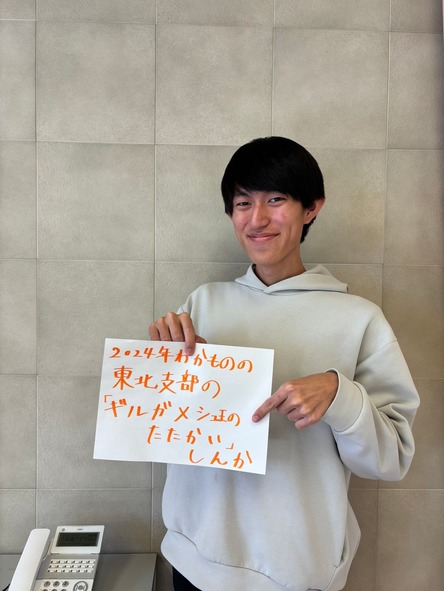 2024年わかものの
東北支部の
「ギルガメシュ王の
たたかい」
しんか